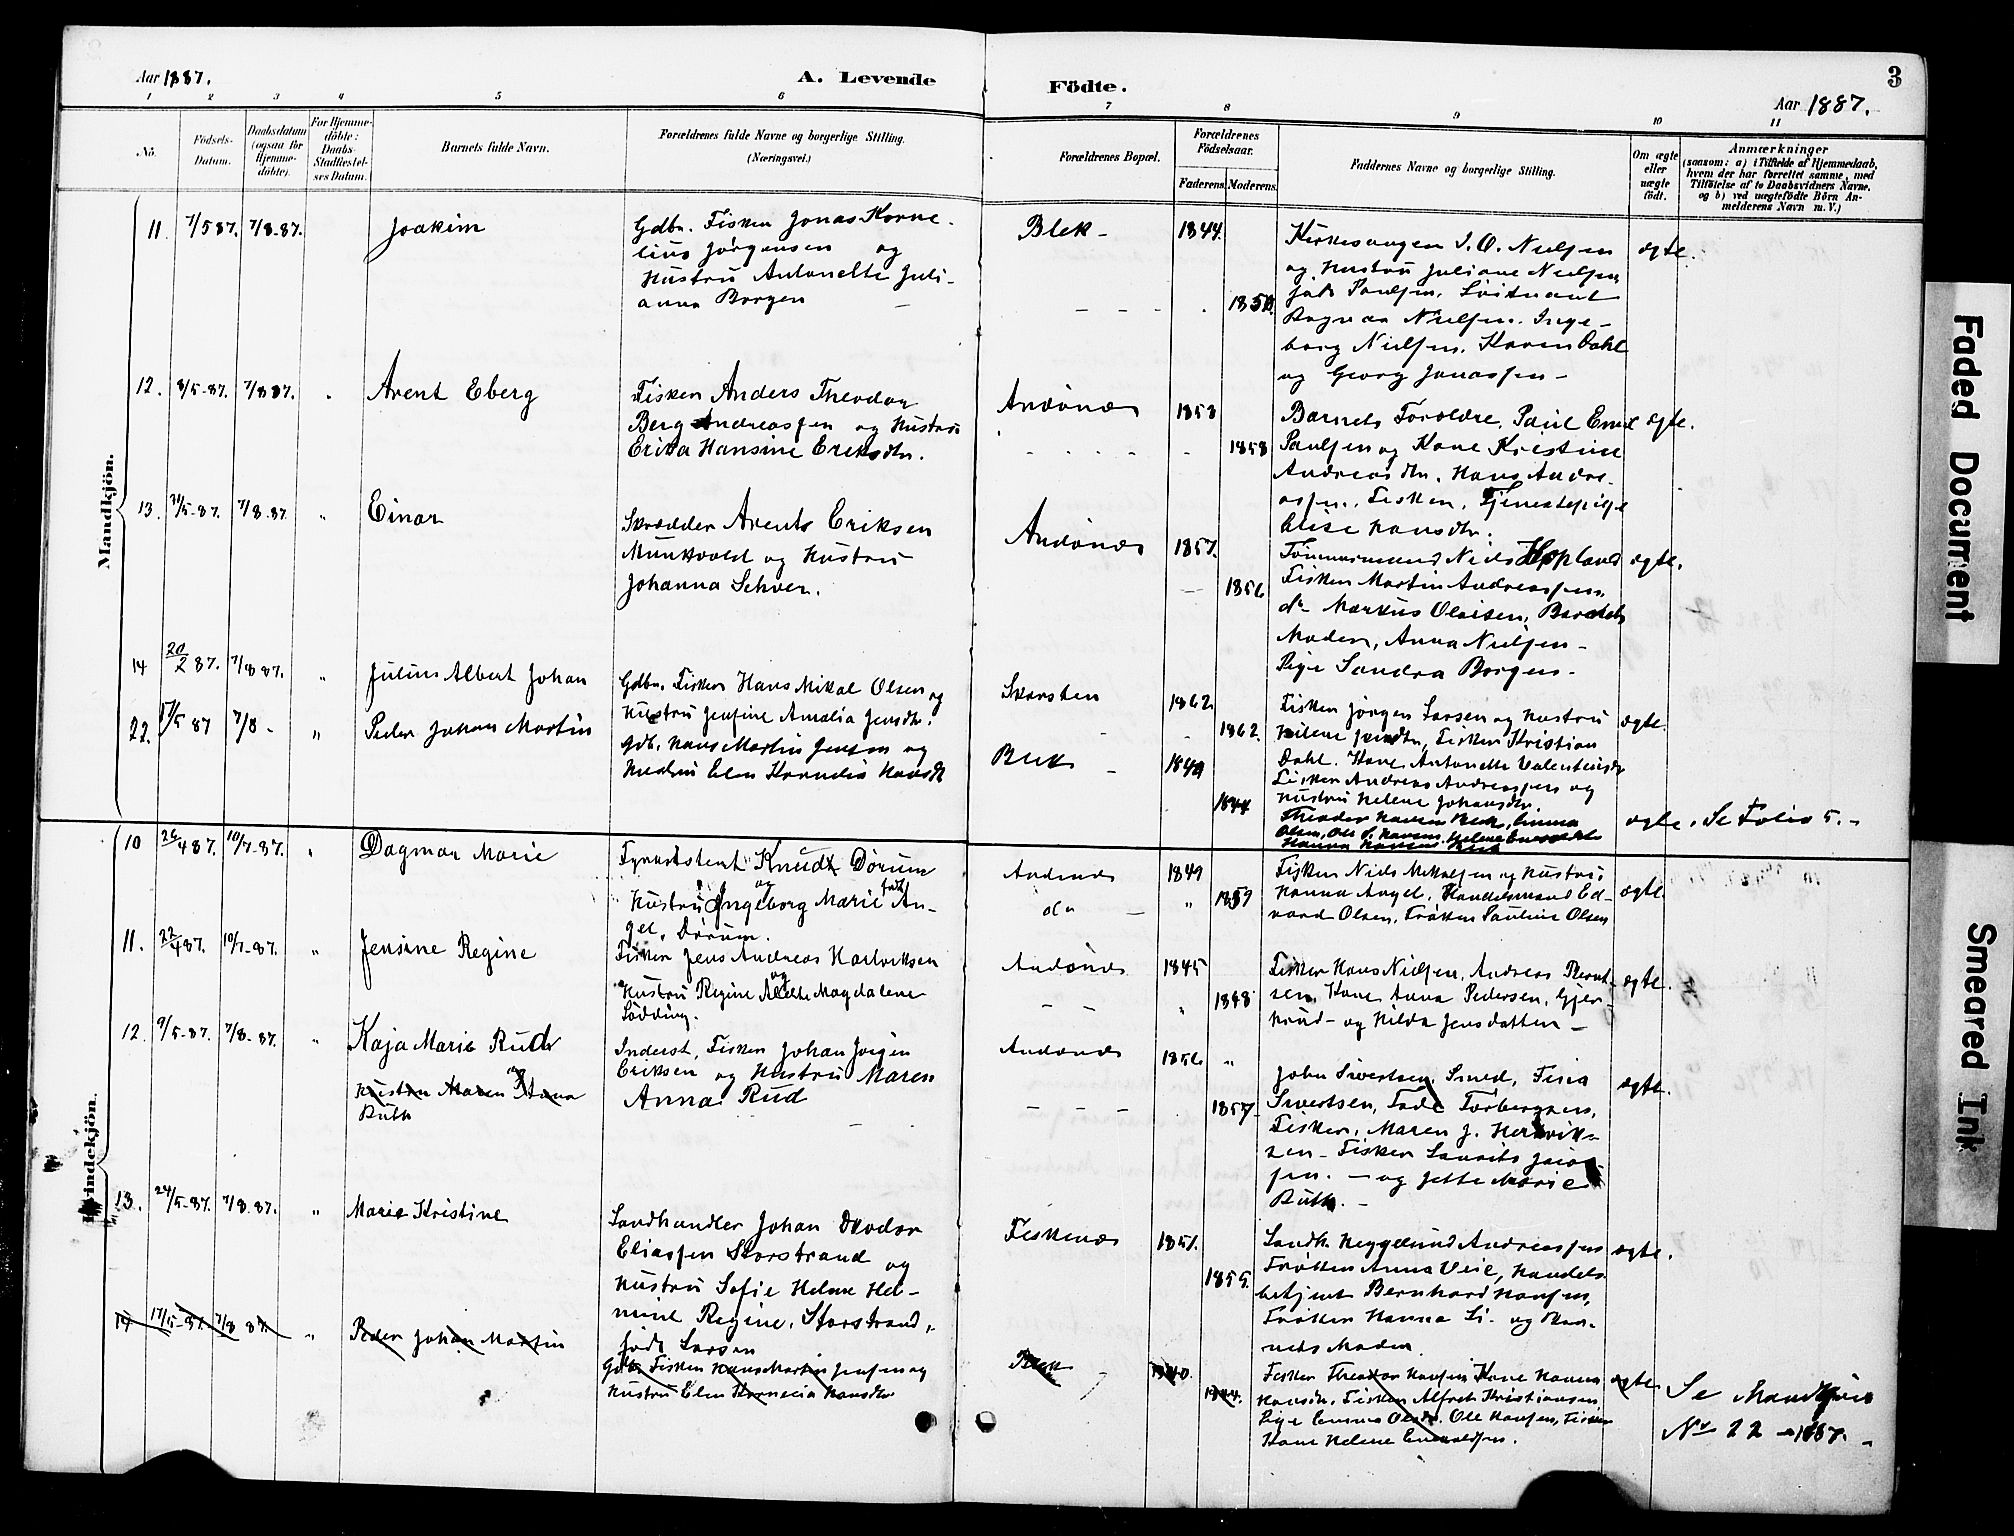 Aar 1887.
A. Levende
Födte.
3
Aar 1887.
1 2 3 4 5 6 7 8 9 10 11
No.
Födsels-
Datum.
Daabsdatum
(ogsaa for
Hjemme-
döbte).
For Hjemme-
döbte:
Daabs-
Stadfæstel-
ses Datum.
Barnets fulde Navn.
Forældrenes fulde Navne og borgerlige Stilling.
(Næringsvei.)
Forældrenes Bopæl.
Forældrenes
Födselsaar.
Faderens.
Moderens.
Faddernes Navne og borgerlige Stilling.
Om ægte
eller
uægte
födt.
Anmærkninger
(saasom: a) i Tilfælde af Hjemmedaab,
hvem der har forrettet samme, med
Tilföielse af to Daabsvidners Navne.
og b) ved uægtefödte Börn An-
melderens Navn m. V.)
Mandkjön.
11. 7/5 87. 7/8-87.
Joakim
Gdbr. Fisker Jonas Korne-
lius Jørgensen og
Hustru Antonette Juli-
anna Borgen
Blek
1844.
Kirkesanger I. O. Nielsen
og Hustru Juliane Nielsen
Paulsen. Løitnant
Ragnar Nielsen. Inge-
borg Nielsen. Karen Dahl
og Georg Jonassen
ægte.
12. 8/5-87. 7/8 87.
Arent Eberg
Fisker Anders Theodor
Berg Andreassen og Hustru
Erika Hansine Eriksdtr.
Andønæs
1858
1858
Barnets Forældre, Paul Emil
Paulsen og Kone Kristine
Andreasdtr. Hans Andre-
assen. Fisker. Tjenestepige
Elise Hansdtr.
ægte.
13. 7/8-87.
Einar
Skrædder Arents Eriksen
Munkvold og Hustru
Johanna Schver.
Andønæs
1857.
1856
Tømmermand Niels Hopland
Fisker Martin Andreassen
do Markus Olaisen, Barnets
Moder, Anna Nielsen
Pige Sandra Borgen
ægte.
14 20/2 87. 7/8 87.
Julius Albert Johan
Gdbr. Fisker Hans Mikal Olsen og
Hustru Jensine Amalia Jensdtr.
Skarsten
1862.
1862.
Fisker Jørgen Larsen og Hustru
Nilene Jensdtr, Fisker Kristian
Dahl. Kone Antonette Valentinsdtr
ægte.
22. 17/5 87 7/8 -
Peder Johan Martin
Gdb. Hans Martin Jensen og
Hustru Elen Kornelia Hansdtr
Blek
1844
Fisker Andreas Andreassen og
Hustru Helene Johansdtr.
Theodor Hansen Blek, Emma
Olsen, Ole S. Hansen, Helene
Hanna Hansen Blek
ægte. Se Folio 5.
Kvindekjön.
10 26/4 87. 10/7-87.
Dagmar Marie
Fyrassistent Knudt Dørum
og
Hustru Ingeborg Marie født An-
gel, Dørum.
Andenæs
do
1849
1859
Fisker Niels Mikalsen og Hustru
Hanna Angel, Handelsmand Ed-
vard Olsen, Frøken Pauline Olsen
ægte
11. 22/4 87. 10/7-87.
Jensine Regine
Fisker Jens Andreas Hartviksen
og
Hustru Regine Adelte Magdalene
Lødding.
Andønæs
1845
1848
Fisker Hans Nielsen, Andreas Bernt-
sen, Kone Anna Pedersen, Gjer-
trud og Hilda Jensdatter
ægte.
12. 9/5-87. 7/8-87.
Kaja Marie Rud
Hustru Maren Anna
Ruth
Inderst, Fisker Johan Jørgen
Eriksen og Hustru Maren
Anna Rud
Andenæs
1856
1857
John Sivertsen, Smed, Fisker
Sivertsen, Fade Torbergsen,
Fisker, Maren J. Hertvik-
sen - Fisker Laurits
og Jette Marie
Ruth.
ægte.
13. 24/5-87. 7/8 87.
Marie Kristine
Landhandler Johan Deodor
Eliassen Storstrand
og
Hustru Sofie Helene Hel-
mine Regine, Storstrand,
født Larsen
Fiskenæs
1851.
1855.
Landh. Heggelund Andreassen
Frøken Anna Veie, Handels-
betjent Bernhard Hansen,
Frøken Hanna Li. og Bar-
nets Moder
ægte.
14 17/5-87. 7/8 87.
Peder Johan Martin
Gdb. Fisker Hans Martin Jensen og
Hustru Elen Kornelia Hansdtr
Blek
1840.
1844.
Fisker Theodor Hansen Kone Hanna
Hansdtr. Fisker Alfred Kristiansen
Pige Emma Olsdtr. Ole Hansen, Fisker
Kone Helene
ægte
Se Mandkjøn
No 22 - 1887.
Faded Document
Smeared Ink